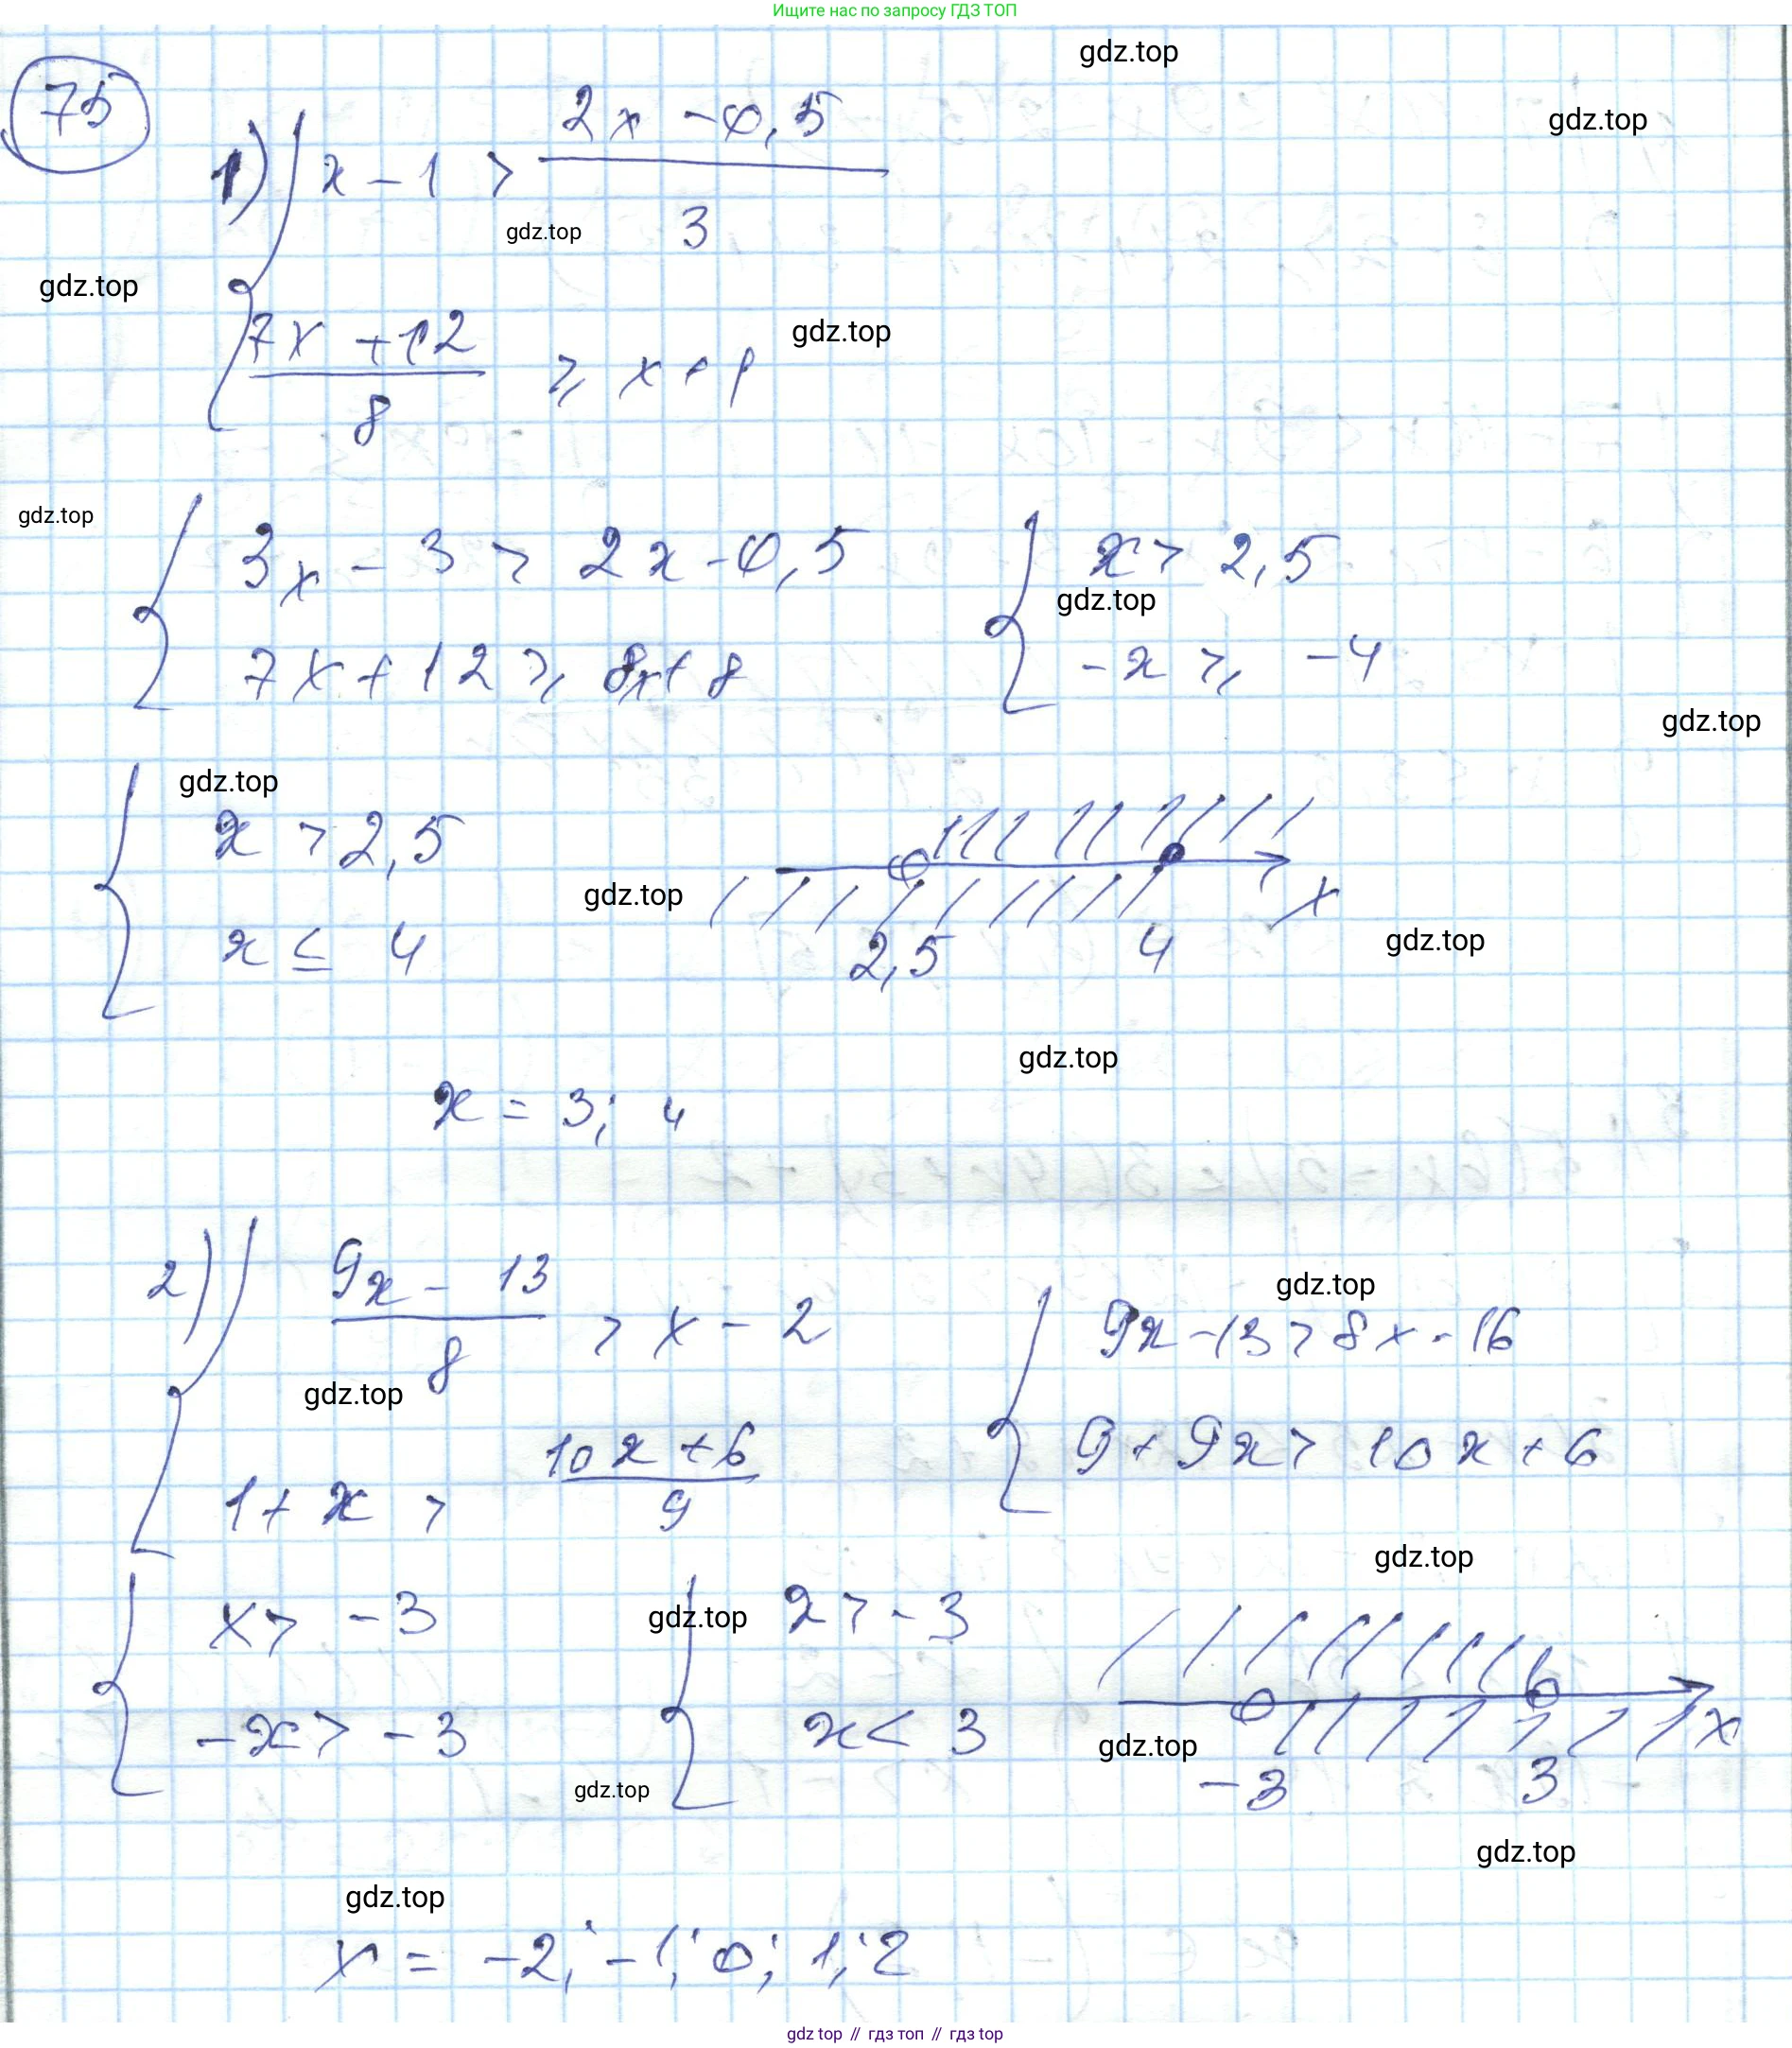 Ищите нас по запросу ГДЗ ТОП
gdz.top
75
gdz.top
1) { x - 1 > (2x - 0,5)/3
gdz.top
gdz.top
(7x + 12)/8 ⩾ x + 1
gdz.top
gdz.top
{ 3x - 3 > 2x - 0,5
7x + 12 ⩾ 8x + 8
{ x > 2,5
gdz.top
-x ⩾ -4
gdz.top
gdz.top
{ x > 2,5
x ≤ 4
gdz.top
2,5 4 x
gdz.top
gdz.top
x = 3; 4
2) { (9x - 13)/8 > x - 2
gdz.top
1 + x > (10x + 6)/9
gdz.top
{ 9x - 13 > 8x - 16
9 + 9x > 10x + 6
gdz.top
{ x > -3
-x > -3
gdz.top
{ x > -3
x < 3
gdz.top
gdz.top
-3 3 x
gdz.top
gdz.top
x = -2; -1; 0; 1; 2
gdz top // гдз топ // гдз top